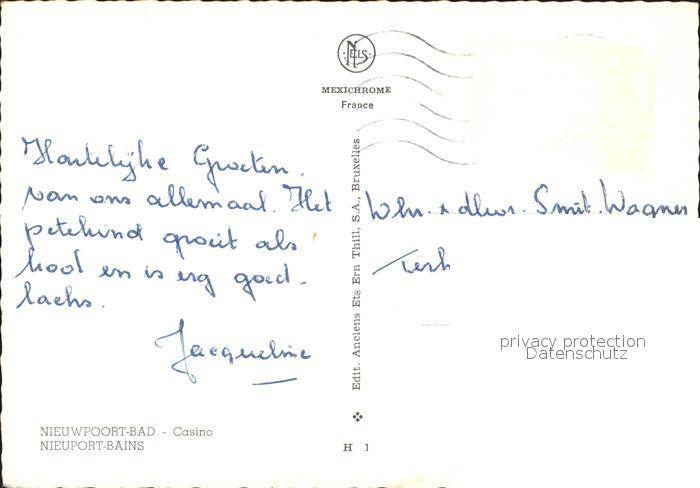 NELS
MEXICHROME
France
Hartelijke Groeten
van ons allemaal. Het
petekind groeit als
kool en is erg goed-
lachs.
Jacqueline
Edit. Anciens Ets Ern Thill, S.A., Bruxelles
Smit. Wagner
privacy protection
Datenschutz
NIEUWPOORT-BAD - Casino
NIEUPORT-BAINS
H 1